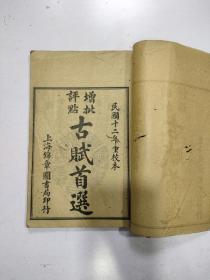 民國十二年重校本
增批
評點
古賦首選
上海錦章圖書局印行